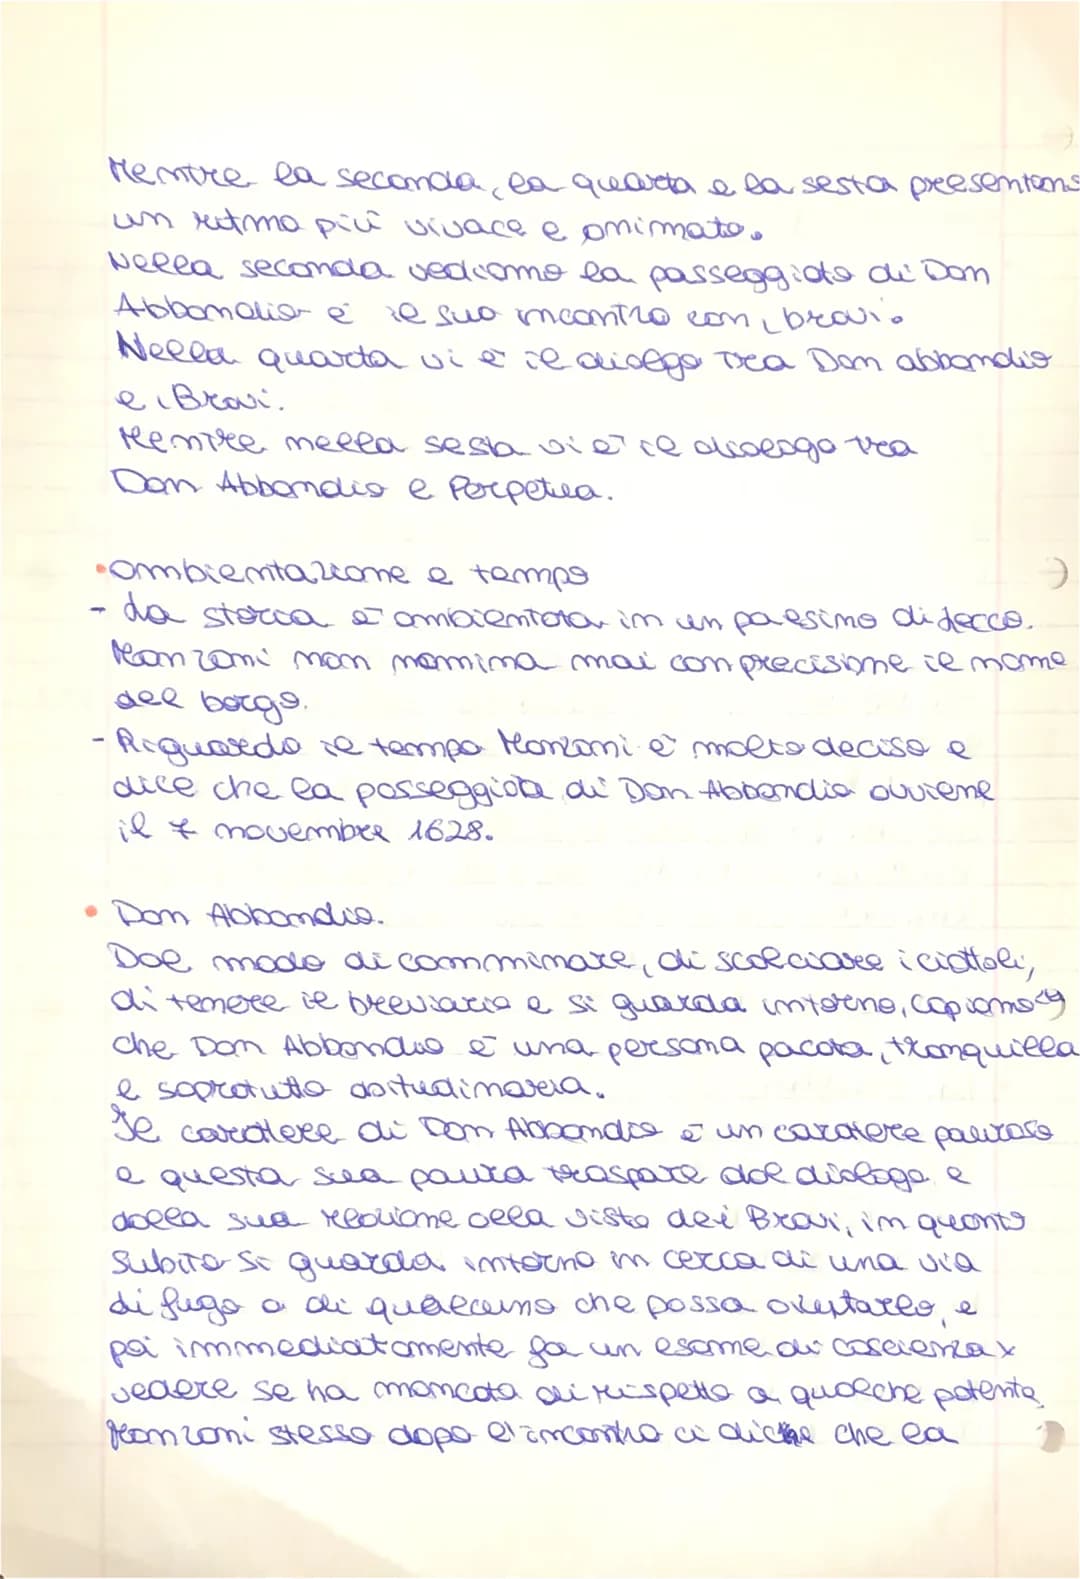 Mentre la seconda, la quarta e la sesta presentano
un ritmo più vivace e animato.
Nella seconda vediamo la passeggiata di Don
Abbondio e il suo incontro con i bravi.
Nella quarta vi è il dialogo tra Don abbondio
e i Bravi.
Mentre nella sesta vi è il dialogo tra
Don Abbondio e Perpetua.
•ambientazione e tempo
- La storia è ambientata in un paesino di Lecco.
Manzoni non nomina mai con precisione il nome
del borgo.
- Riguardo il tempo Manzoni è molto deciso e
dice che la passeggiata di Don Abbondio avviene
il 7 novembre 1628.
• Don Abbondio.
Dal modo di camminare, di scalciare i ciottoli,
di tenere il breviario e si guarda intorno, capiamo
che Don Abbondio è una persona pacata, tranquilla
e sopratutto abitudinaria.
Il carattere di Don Abbondio è un carattere pauroso
e questa sua paura traspare dal dialogo e
dalla sua reazione alla vista dei Bravi, in quanto
subito si guarda intorno in cerca di una via
di fuga o di qualcuno che possa aiutarlo, e
poi immediatamente fa un esame di coscienza x
vedere se ha mancato di rispetto a qualche potente
Manzoni stesso dopo l'incontro ci dice che la